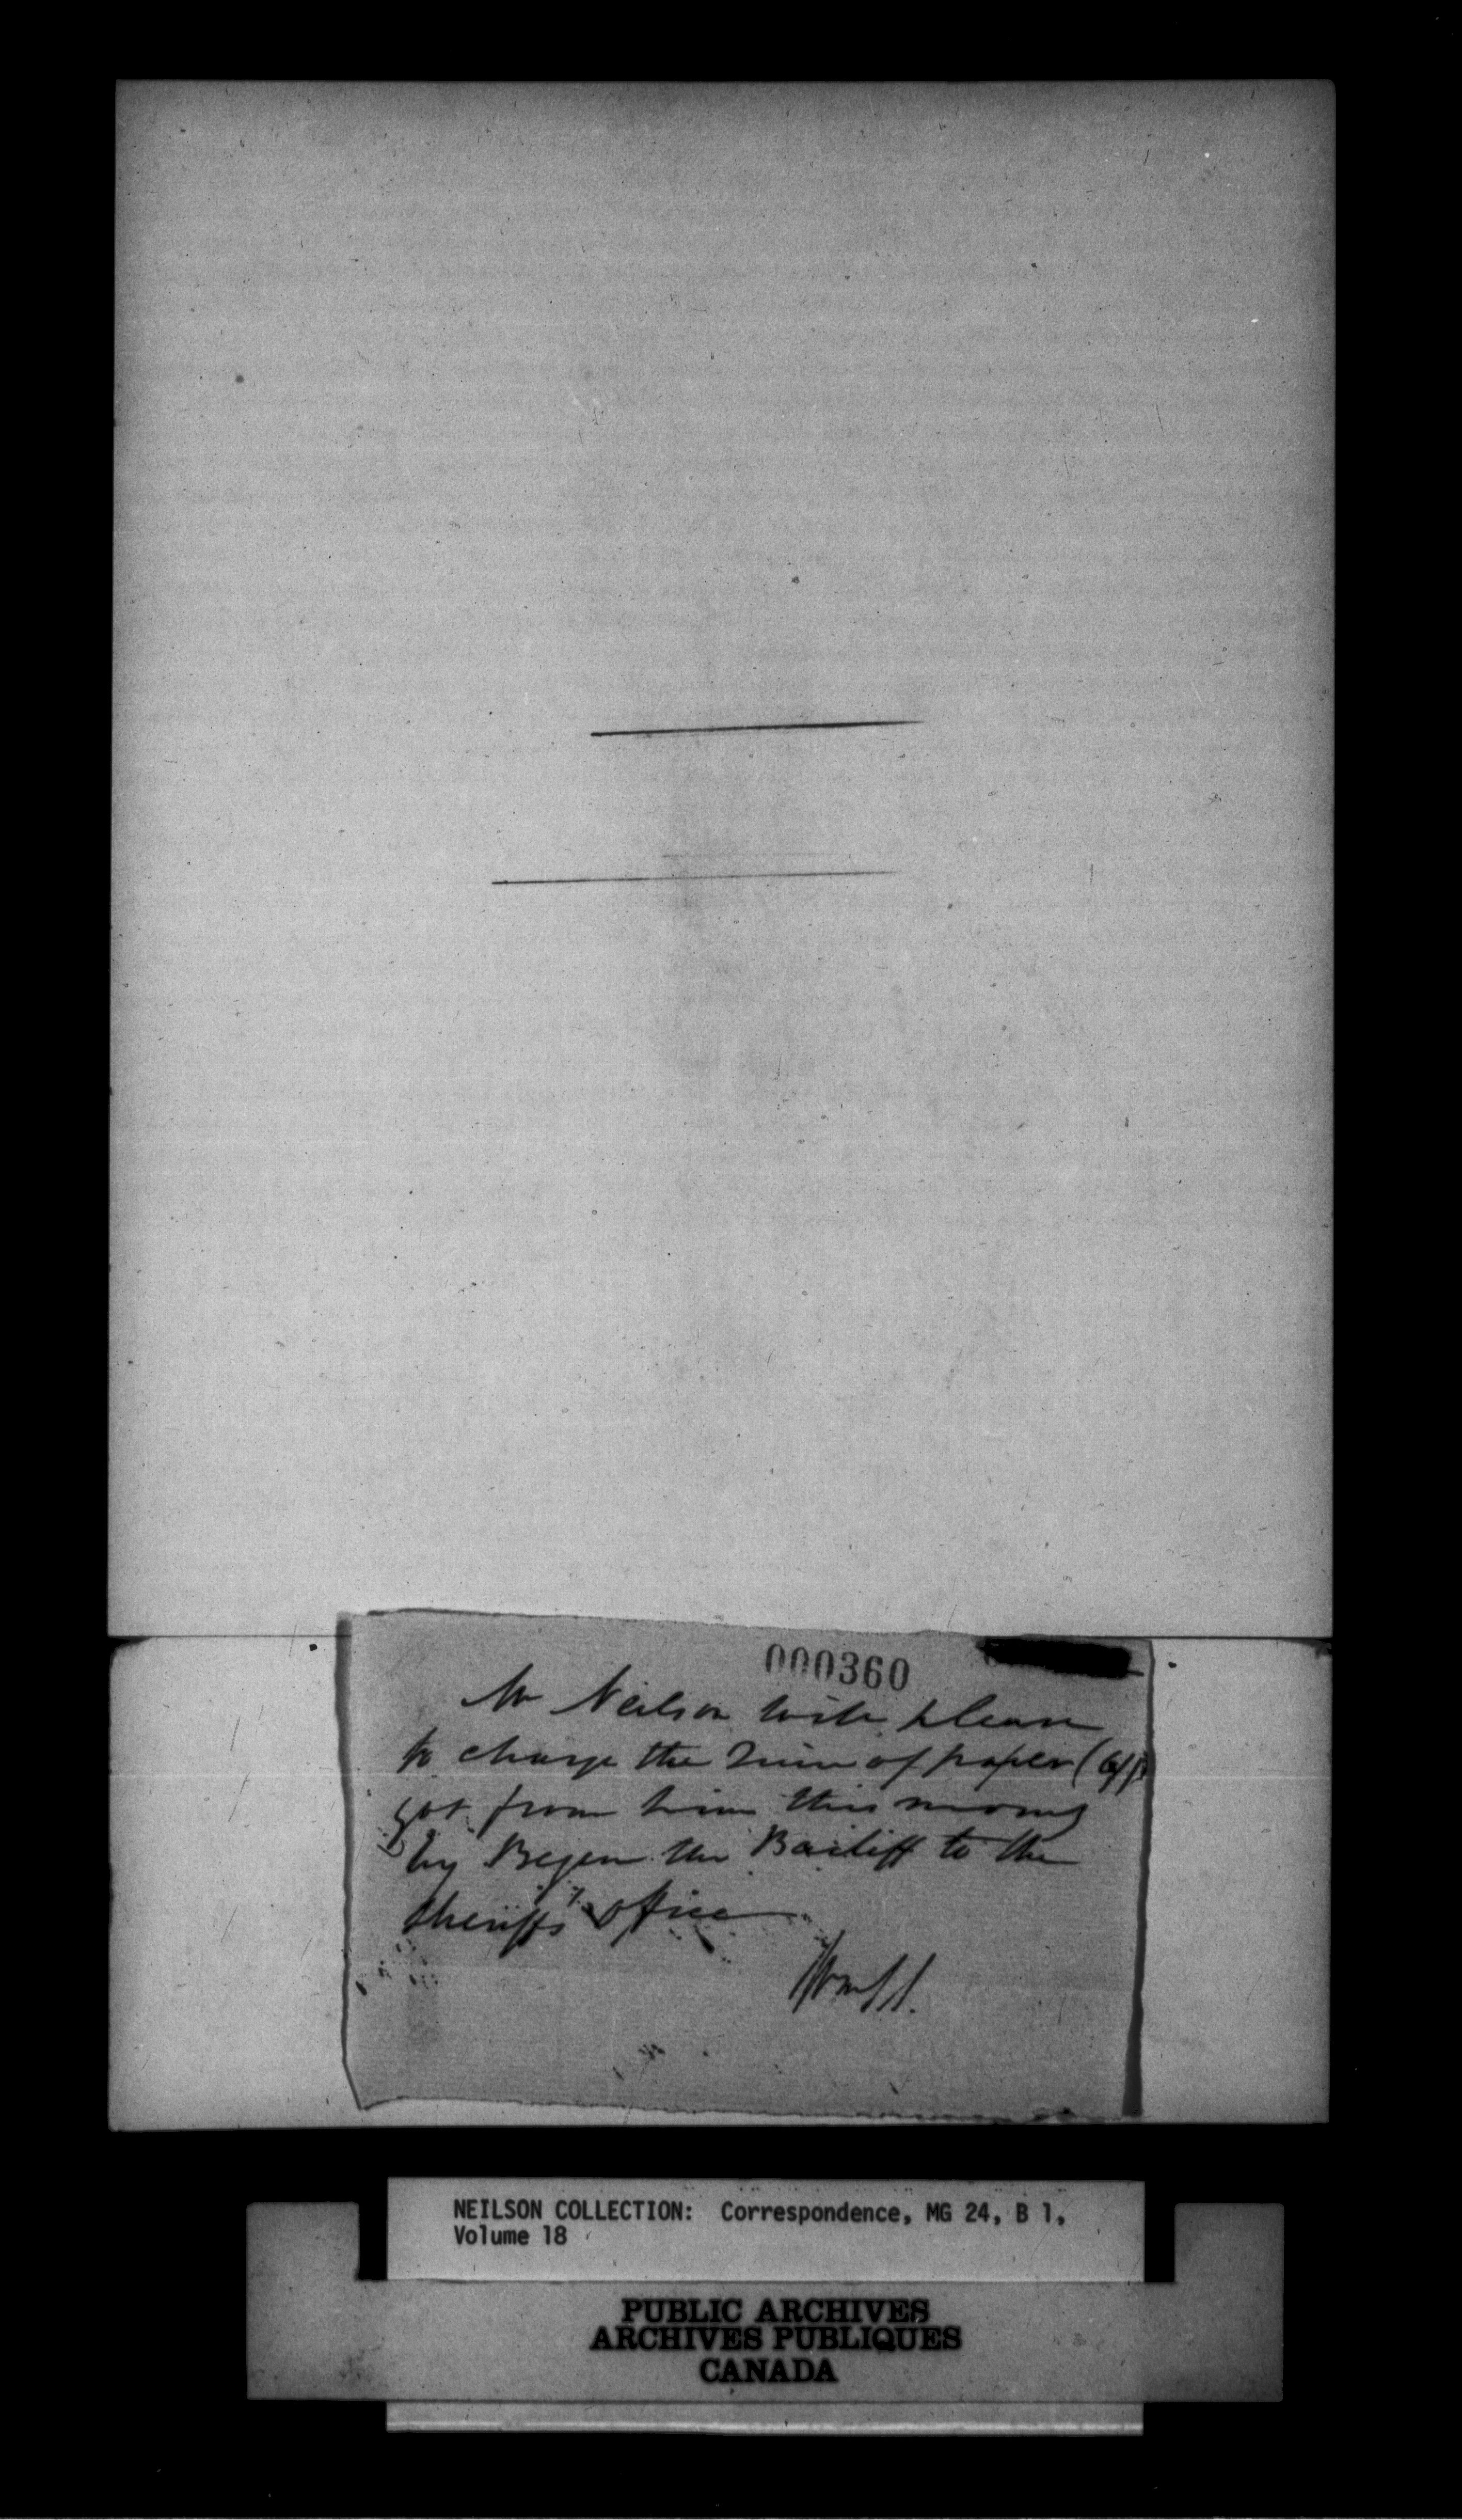 000360
Mr Neilson will please
to charge the Quire of paper
got from him this morng
by the Bailiff to the
Sheriff's office
NEILSON COLLECTION: Correspondence, MG 24, B 1,
Volume 18
PUBLIC ARCHIVES
ARCHIVES PUBLIQUES
CANADA